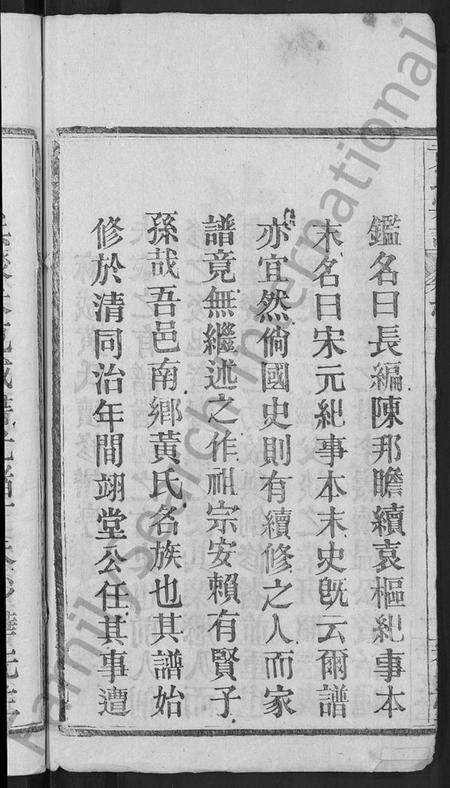 鑑名曰長編陳邦瞻續袁樞紀事本
末名曰宋元紀事本末史既云爾譜
亦宜然倘國史則有續修之人而家
譜竟無繼述之作祖宗安賴有賢子
孫哉吾邑南鄉黄氏名族也其譜始
修於清同治年間翊堂公任其事遭
FamilySearch International